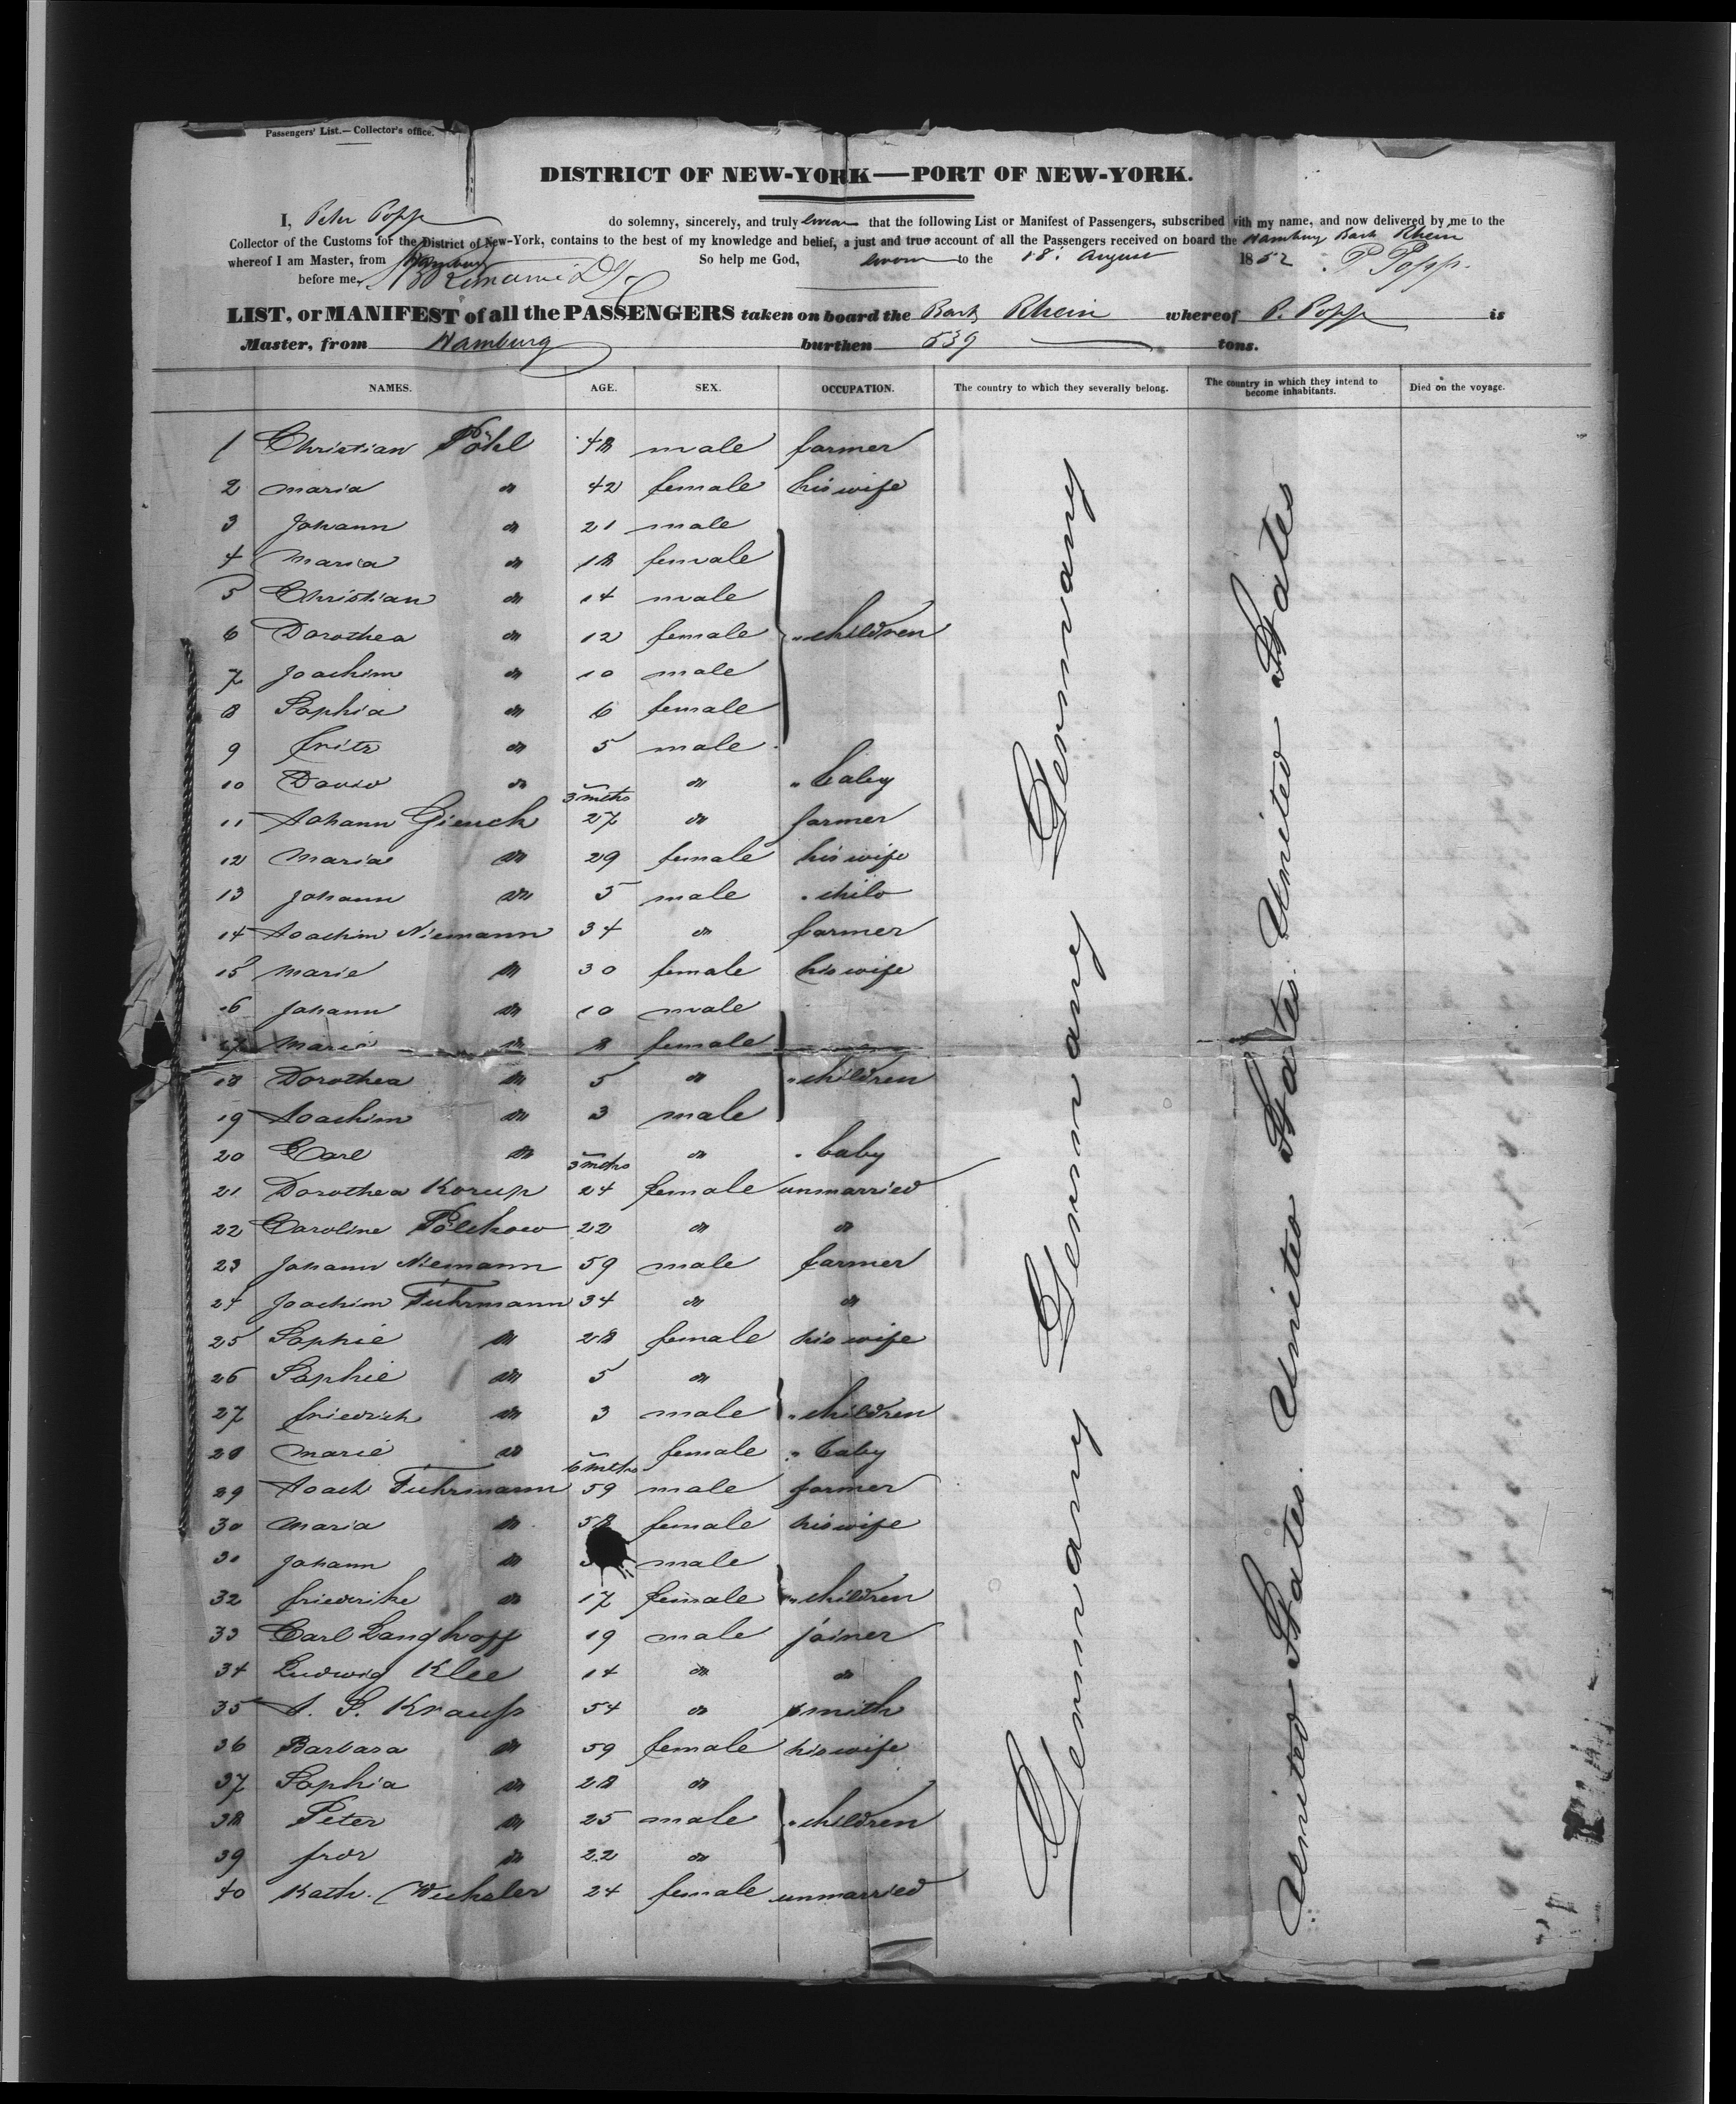 Passengers' List.—Collector's office.
DISTRICT OF NEW-YORK—PORT OF NEW-YORK.
I, Peter Popp do solemny, sincerely, and truly swear that the following List or Manifest of Passengers, subscribed with my name, and now delivered by me to the
Collector of the Customs for the District of New-York, contains to the best of my knowledge and belief, a just and true account of all the Passengers received on board the Hamburg Bark Rhein
whereof I am Master, from Hamburg So help me God, sworn to the 18. August 1852. P. Popp.
before me,
LIST, or MANIFEST of all the PASSENGERS taken on board the Bark Rhein whereof P. Popp is
Master, from Hamburg burthen 539 tons.
NAMES. AGE. SEX. OCCUPATION. The country to which they severally belong. The country in which they intend to become inhabitants. Died on the voyage.
1 Christian Pöhl 48 male farmer
2 Maria " 42 female his wife
3 Johann " 21 male
4 Maria " 18 female
5 Christian " 14 male
6 Dorothea " 12 female " children
7 Joachim " 10 male
8 Sophia " 6 female
9 Fritz " 5 male
10 David " 3 mths " " baby
11 Johann Giench 27 " farmer
12 Maria " 29 female his wife
13 Johann " 5 male " child
14 Joachim Niemann 34 " farmer
15 Marie " 30 female his wife
16 Johann " 10 male
17 Marie " 8 female
18 Dorothea " 5 " " children
19 Joachim " 3 male
20 Carl " 3 mths " " baby
21 Dorothea Korup 24 female unmarried
22 Caroline Pölchow 22 " "
23 Johann Niemann 59 male farmer
24 Joachim Fuhrmann 34 " "
25 Sophie " 28 female his wife
26 Sophie " 5 "
27 Friedrich " 3 male " children
28 Marie " 6 mths female " baby
29 Joach Fuhrmann 59 male farmer
30 Maria " 58 female his wife
31 Johann " male
32 Friederike " 17 female " children
33 Carl Langhoff 19 male joiner
34 Ludwig Klee 14 " "
35 J. S. Krauß 54 " smith
36 Barbara " 59 female his wife
37 Sophia " 28 "
38 Peter " 25 male " children
39 Fror " 22 "
40 Kath. Wechsler 24 female unmarried
Germany Germany Germany Germany
United States. United States. United States